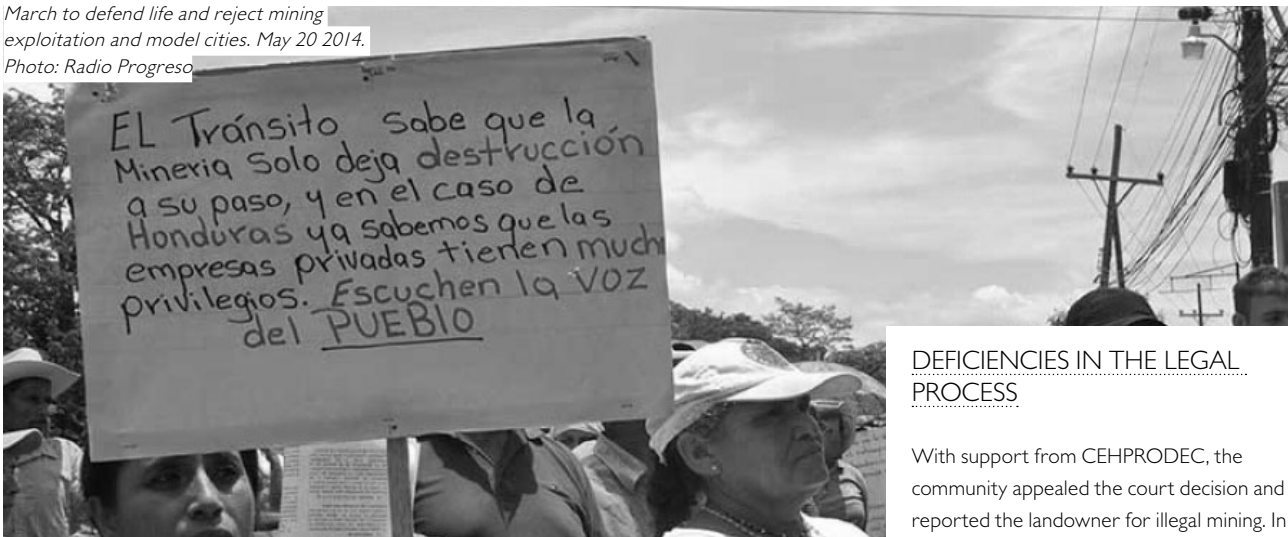 March to defend life and reject mining
exploitation and model cities. May 20 2014.
Photo: Radio Progreso
EL Tránsito sabe que la
Mineria Solo deja destrucción
a su paso, y en el caso de
Honduras ya sabemos que las
empresas privadas tienen
privilegios. Escuchen la VOZ
del PUEBlO
DEFICIENCIES IN THE LEGAL
PROCESS
With support from CEHPRODEC, the
community appealed the court decision and
reported the landowner for illegal mining. In